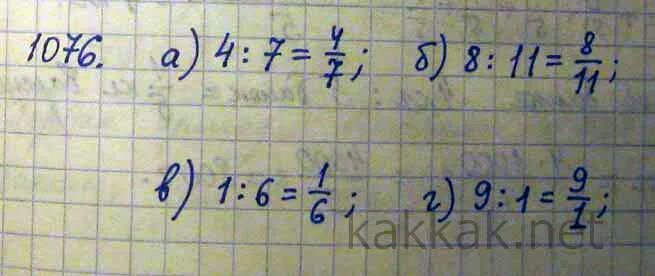 1076. а) 4 : 7 = 4/7; б) 8 : 11 = 8/11;
в) 1 : 6 = 1/6; г) 9 : 1 = 9/1;
kakkak.net